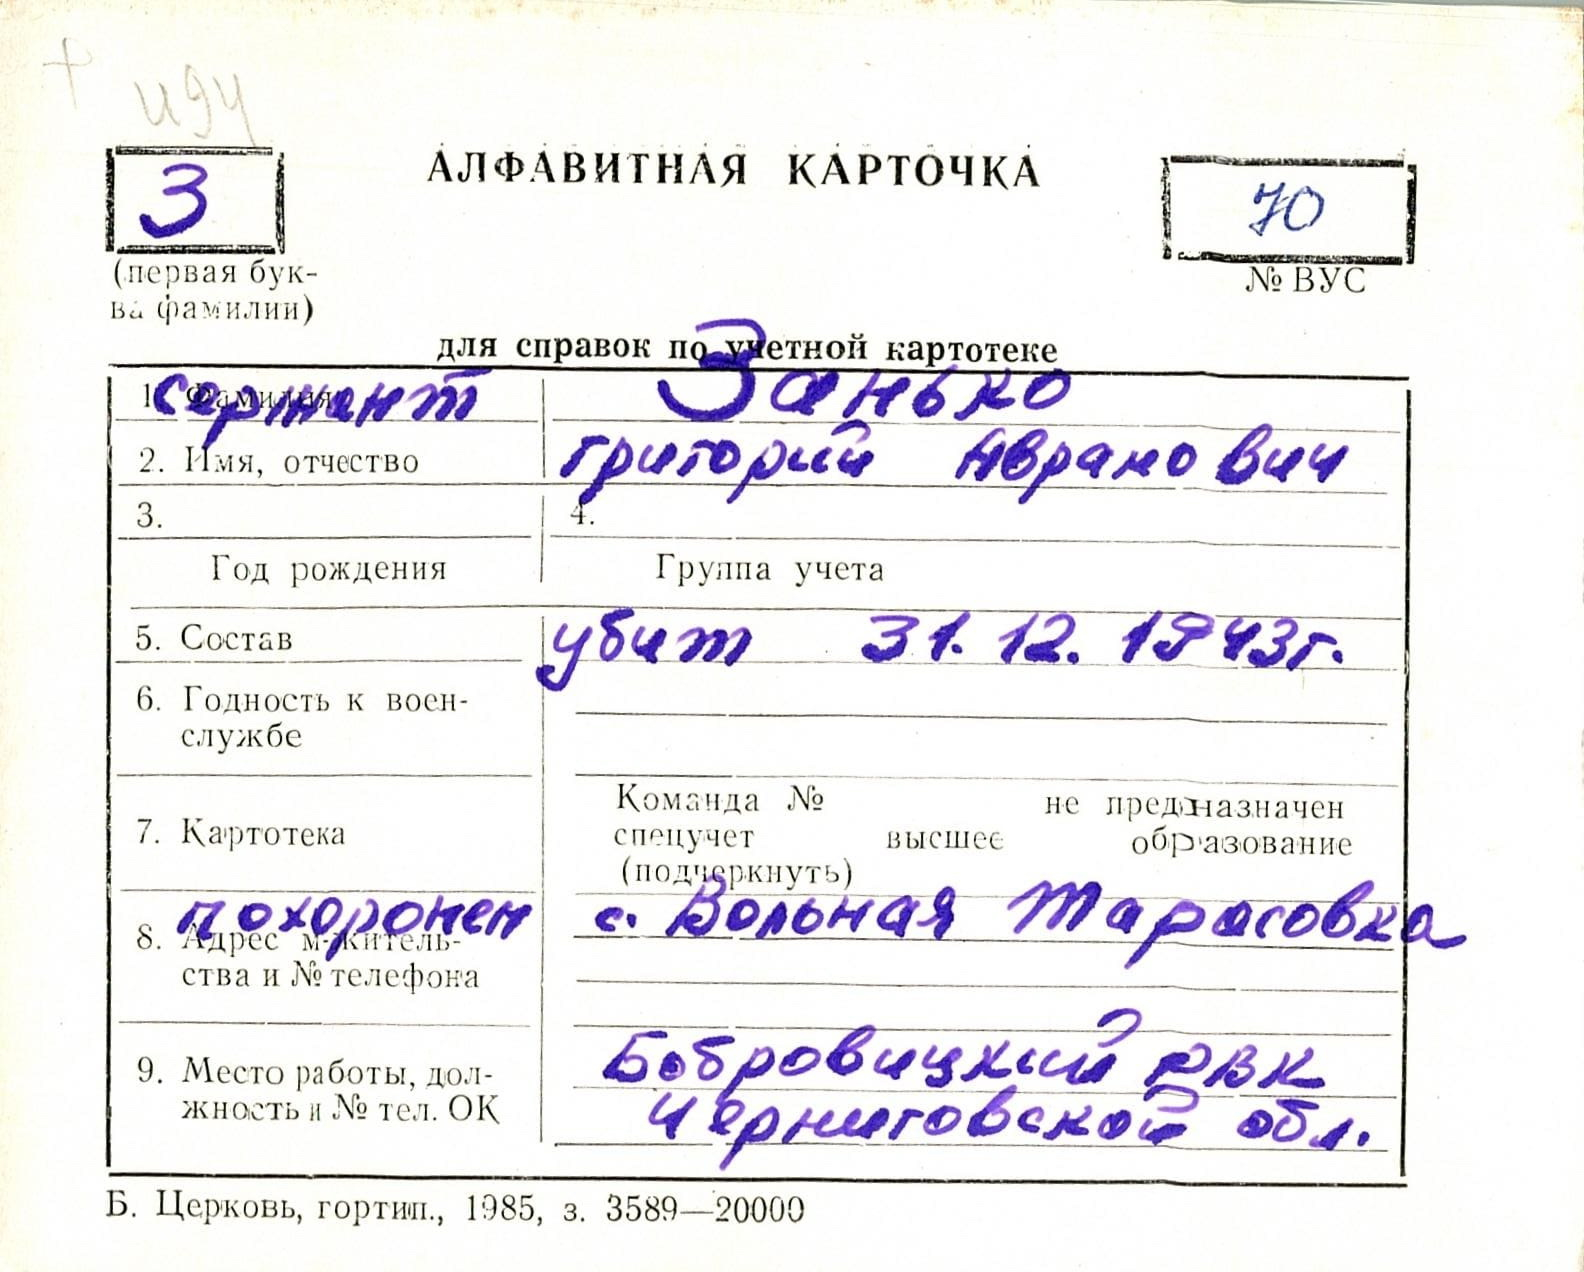 и94
З
АЛФАВИТНАЯ КАРТОЧКА
70
(первая бук-
ва фамилии)
№ ВУС
для справок по учетной картотеке
1. Фамилия
сержант Занько
2. Имя, отчество Григорий Аврамович
3. 4.
Год рождения Группа учета
5. Состав убит 31.12.1943г.
6. Годность к воен-
службе
7. Картотека
Команда № не предназначен
спецучет высшее образование
(подчеркнуть)
похоронен с. Вольная Тарасовка
8. Адрес м-житель-
ства и № телефона
9. Место работы, дол-
жность и № тел. ОК
Бобровицкий РВК
Черниговской обл.
Б. Церковь, гортип., 1985, з. 3589—20000